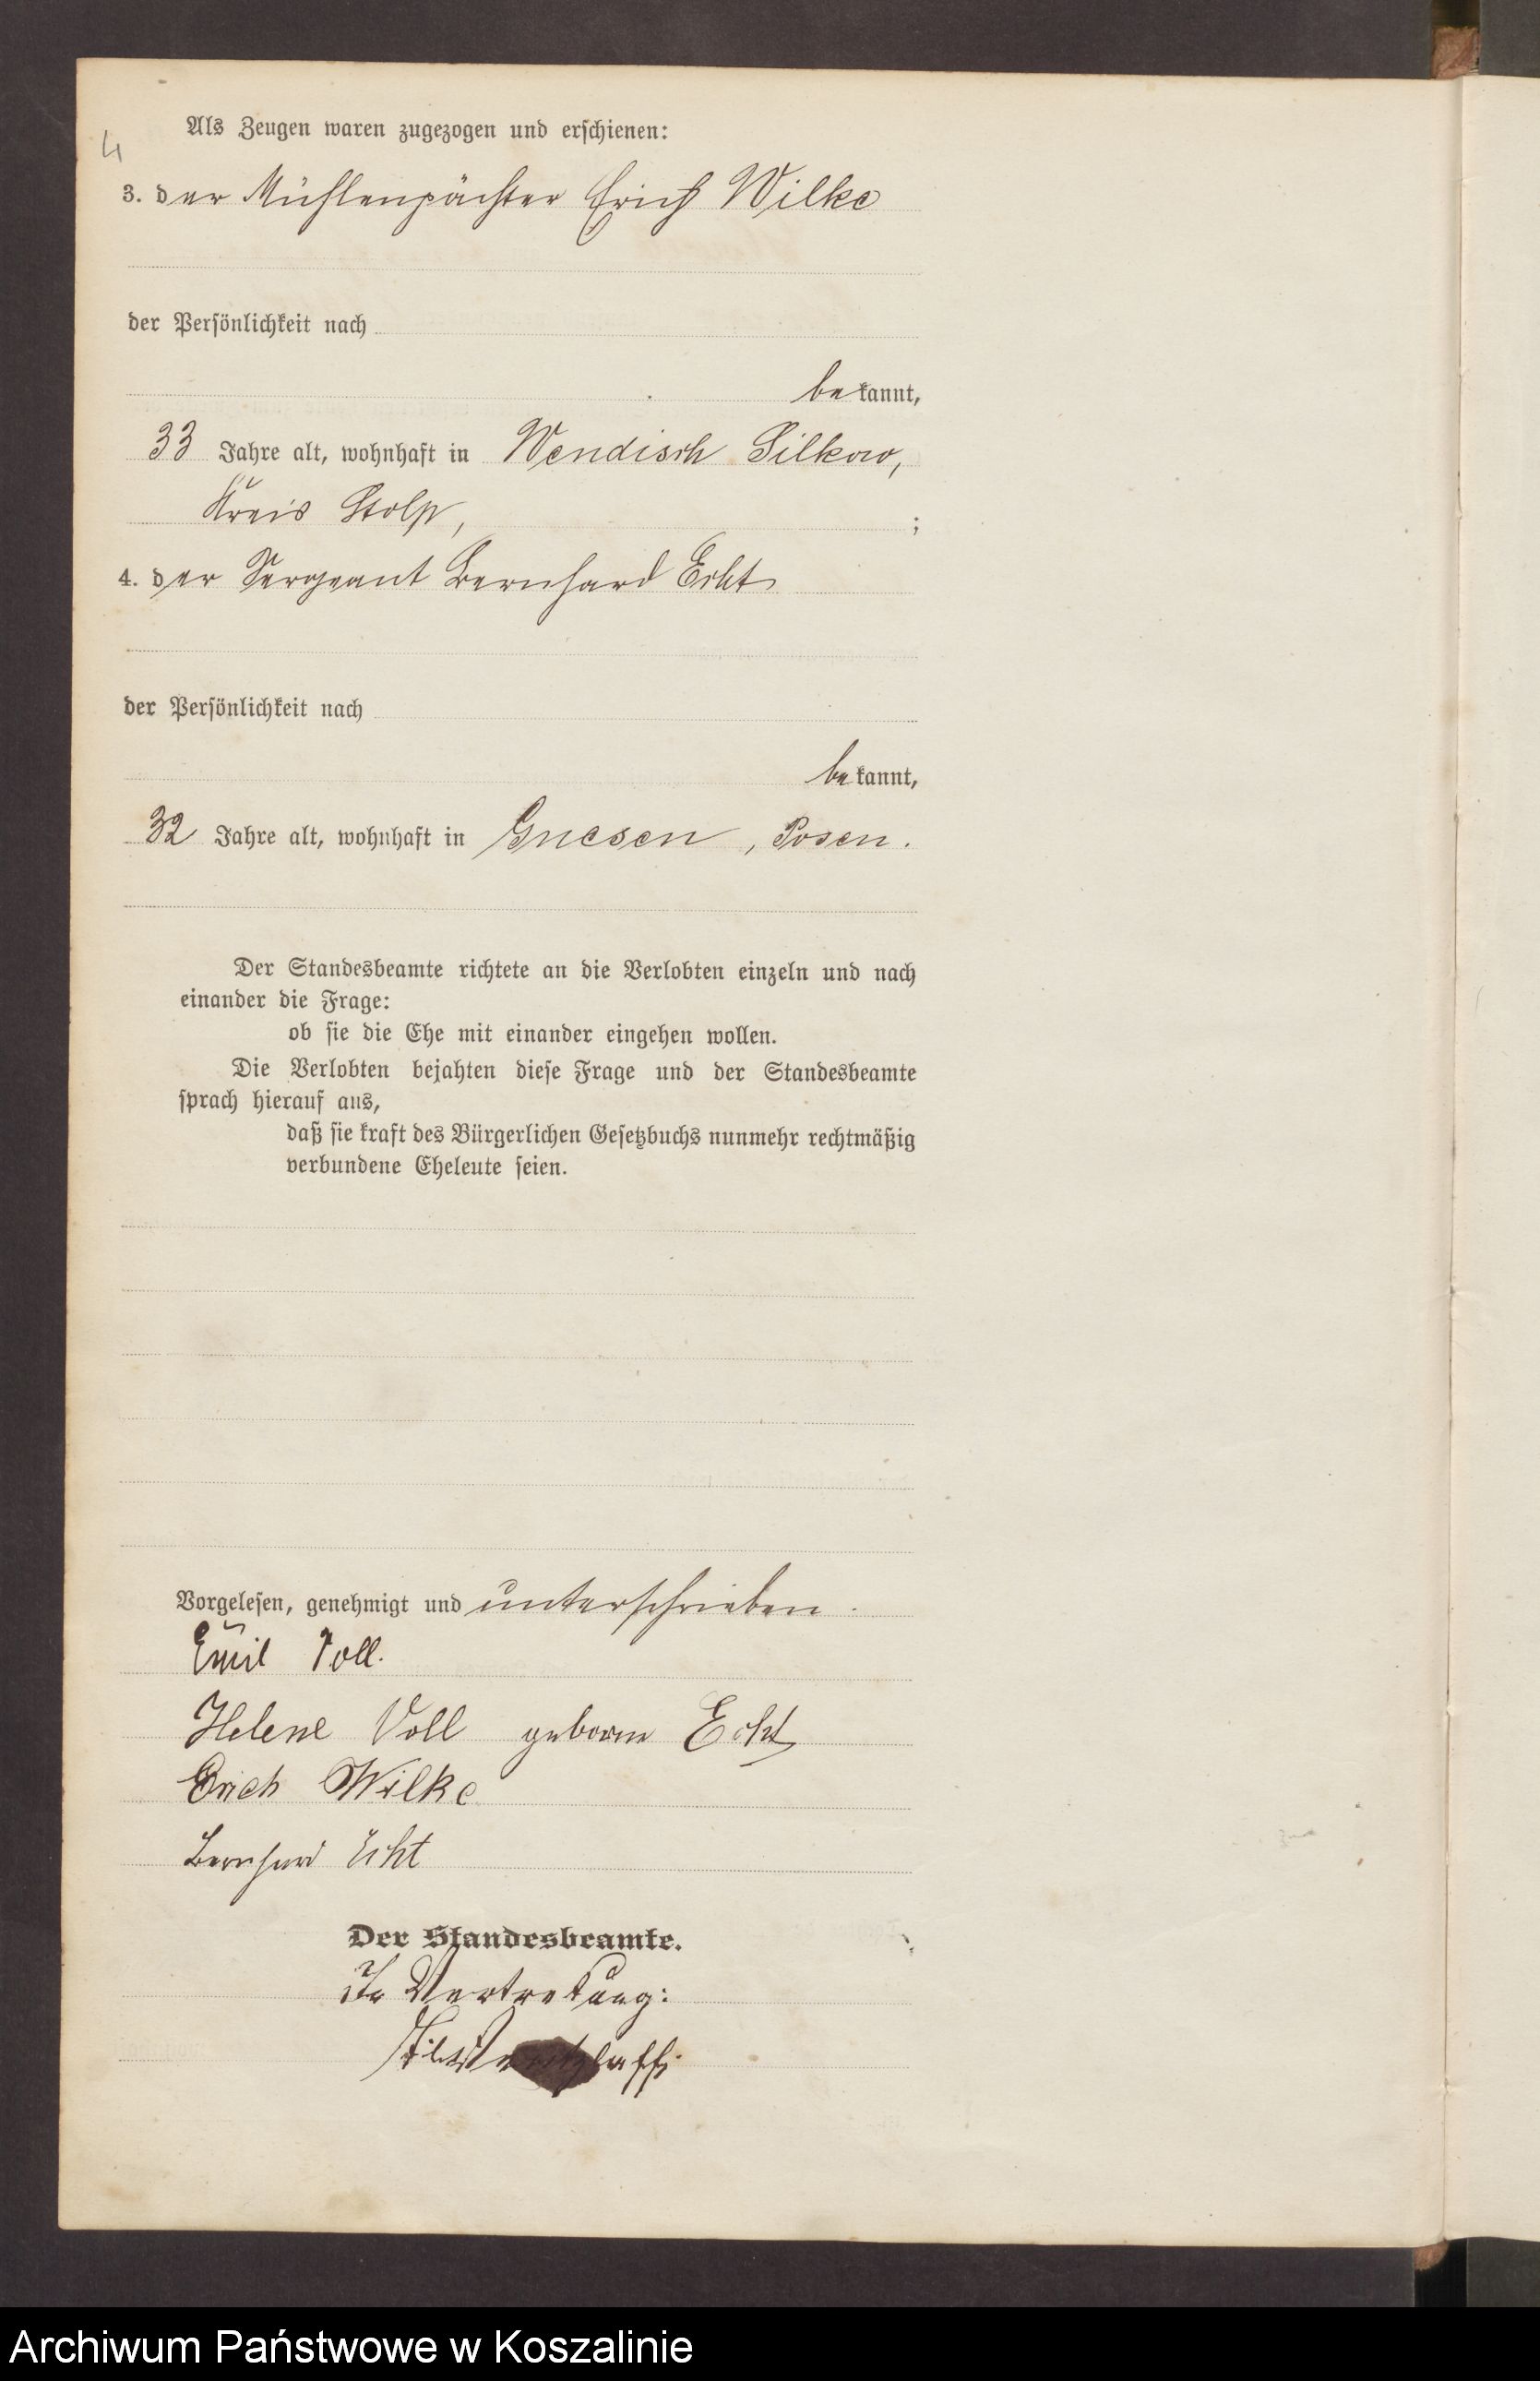 4
Als Zeugen waren zugezogen und erschienen:
3. der Mühlenpächter Erich Wilke
der Persönlichkeit nach
bekannt,
33 Jahre alt, wohnhaft in Wendisch Silkow,
Kreis Stolp, ;
4. der Sergeant Bernhard Echt
der Persönlichkeit nach
bekannt,
32 Jahre alt, wohnhaft in Gnesen, Posen.
Der Standesbeamte richtete an die Verlobten einzeln und nach
einander die Frage:
ob sie die Ehe mit einander eingehen wollen.
Die Verlobten bejahten diese Frage und der Standesbeamte
sprach hierauf aus,
daß sie kraft des Bürgerlichen Gesetzbuchs nunmehr rechtmäßig
verbundene Eheleute seien.
Vorgelesen, genehmigt und unterschrieben.
Emil Voll.
Helene Voll geborne Echt
Erich Wilke
Bernhard Echt
Der Standesbeamte.
In Vertretung:
Archiwum Państwowe w Koszalinie